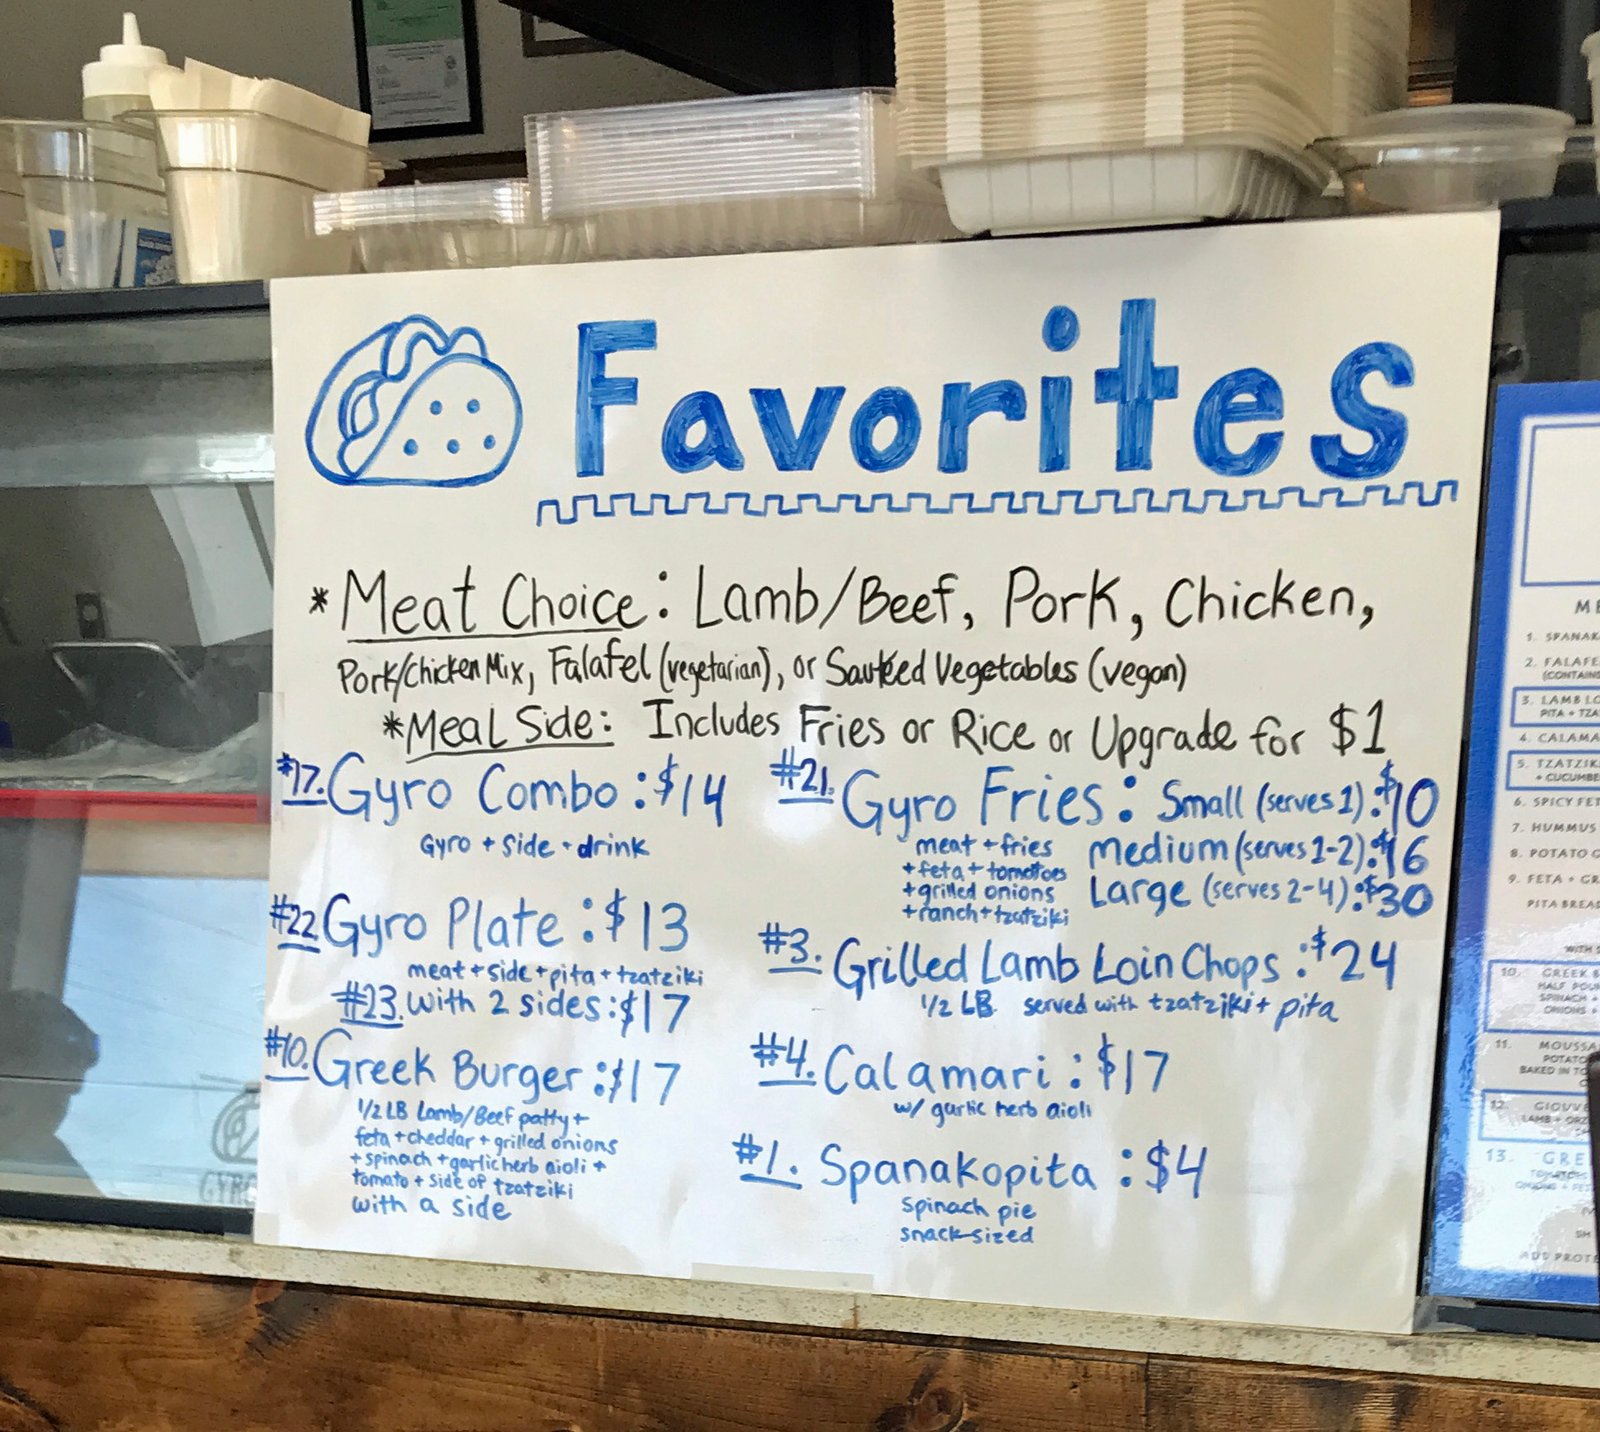 Favorites
*Meat Choice: Lamb/Beef, Pork, Chicken,
Pork/Chicken Mix, Falafel (vegetarian), or Sautéed Vegetables (vegan)
*Meal Side: Includes Fries or Rice or Upgrade for $1
#17. Gyro Combo: $14
Gyro + side + drink
#22 Gyro Plate: $13
meat + side + pita + tzatziki
#23. with 2 sides: $17
#10. Greek Burger: $17
1/2 LB Lamb/Beef patty +
feta + cheddar + grilled onions
+ spinach + garlic herb aioli +
tomato + side of tzatziki
with a side
#21. Gyro Fries: Small (serves 1): $10
meat + fries
+ feta + tomotoes
+ grilled onions
+ ranch + tzatziki
Medium (serves 1-2): $16
Large (serves 2-4): $30
#3. Grilled Lamb Loin Chops: $24
1/2 LB served with tzatziki + pita
#4. Calamari: $17
w/ garlic herb aioli
#1. Spanakopita: $4
spinach pie
snack-sized
GYRO
1.
2.
3. LAMB
PITA +
4.
5.
+
6. SPICY
7. HUMMUS
8. POTATO
9. FETA +
PITA
10. GREEK
HALF
SPINACH +
ONIONS +
11.
BAKED IN
12.
LAMB +
13.
ADD